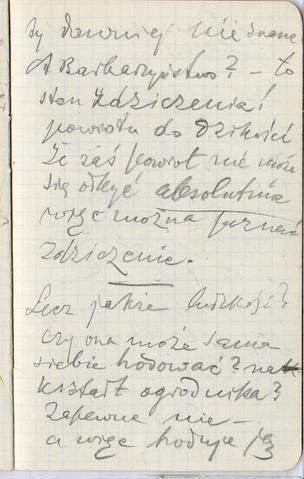 by dawniej nie znane
A Barbarzyństwo? – to
stan zdziczenia!
powrotu do dzikości
że zaś powrot nie może
się odbyć absolutnie
więc można poznać
zdziczenie.
Lecz jakże ludzkość?
czy ona może sama
siebie hodować? na
kształt ogrodnika?
Zapewne nie –
a więc hoduje ją